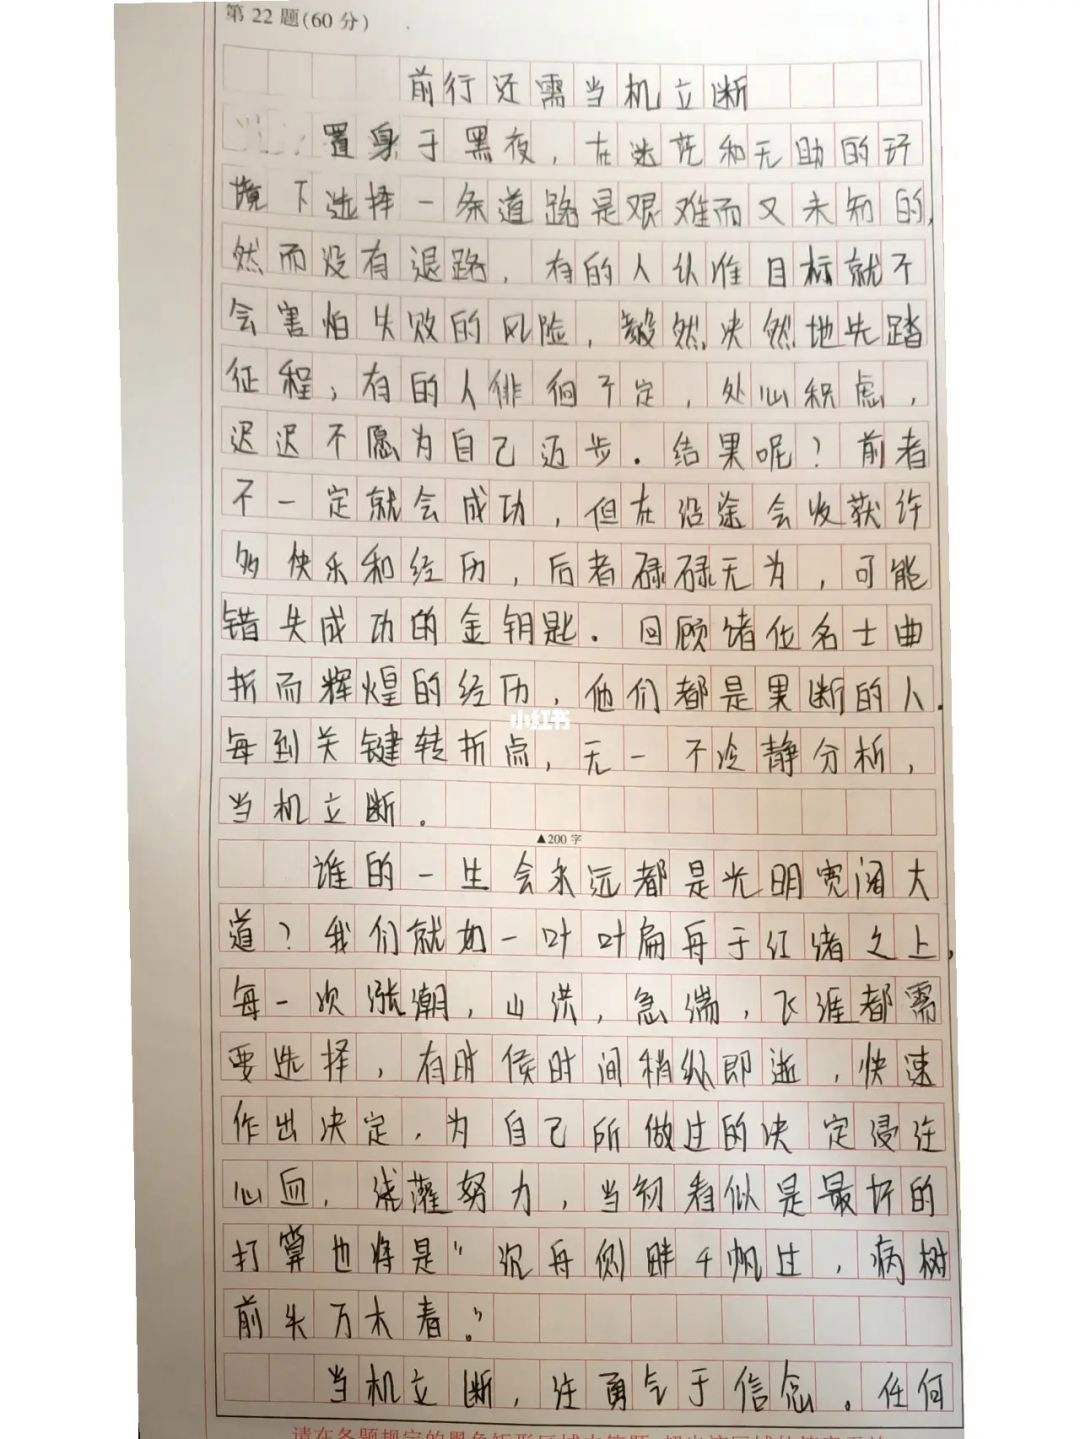 第22题(60分)
前行还需当机立断
置身于黑夜，在迷茫和无助的环
境下选择一条道路是艰难而又未知的，
然而没有退路，有的人认准目标就不
会害怕失败的风险，毅然决然地先踏
征程；有的人徘徊不定，处心积虑，
迟迟不愿为自己迈步。结果呢？前者
不一定就会成功，但在沿途会收获许
多快乐和经历，后者碌碌无为，可能
错失成功的金钥匙。回顾诸位名士曲
折而辉煌的经历，他们都是果断的人。
每到关键转折点，无一不冷静分析，
小红书
当机立断。
▲200字
谁的一生会永远都是光明宽阔大
道？我们就如一叶叶扁舟于红绪之上，
每一次涨潮，山洪，急湍，飞涯都需
要选择，有时侯时间稍纵即逝，快速
作出决定，为自己所做过的决定浸注
心血，浇灌努力，当初看似是最坏的
打算也将是“沉舟侧畔千帆过，病树
前头万木春。”
当机立断，注勇气于信念。任何